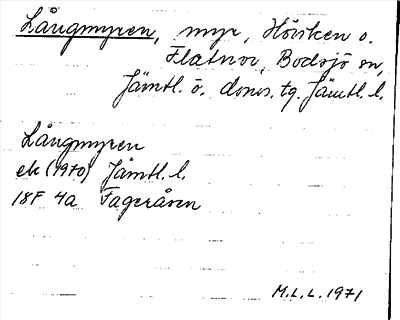 Långmyren, myr, Höviken o.
Flatnor, Bodsjö sn,
Jämtl. ö. doms. tg. Jämtl. l.
Långmyren
ek (1970) Jämtl. l.
18F 4a Fageråsen
M.L.L. 1971